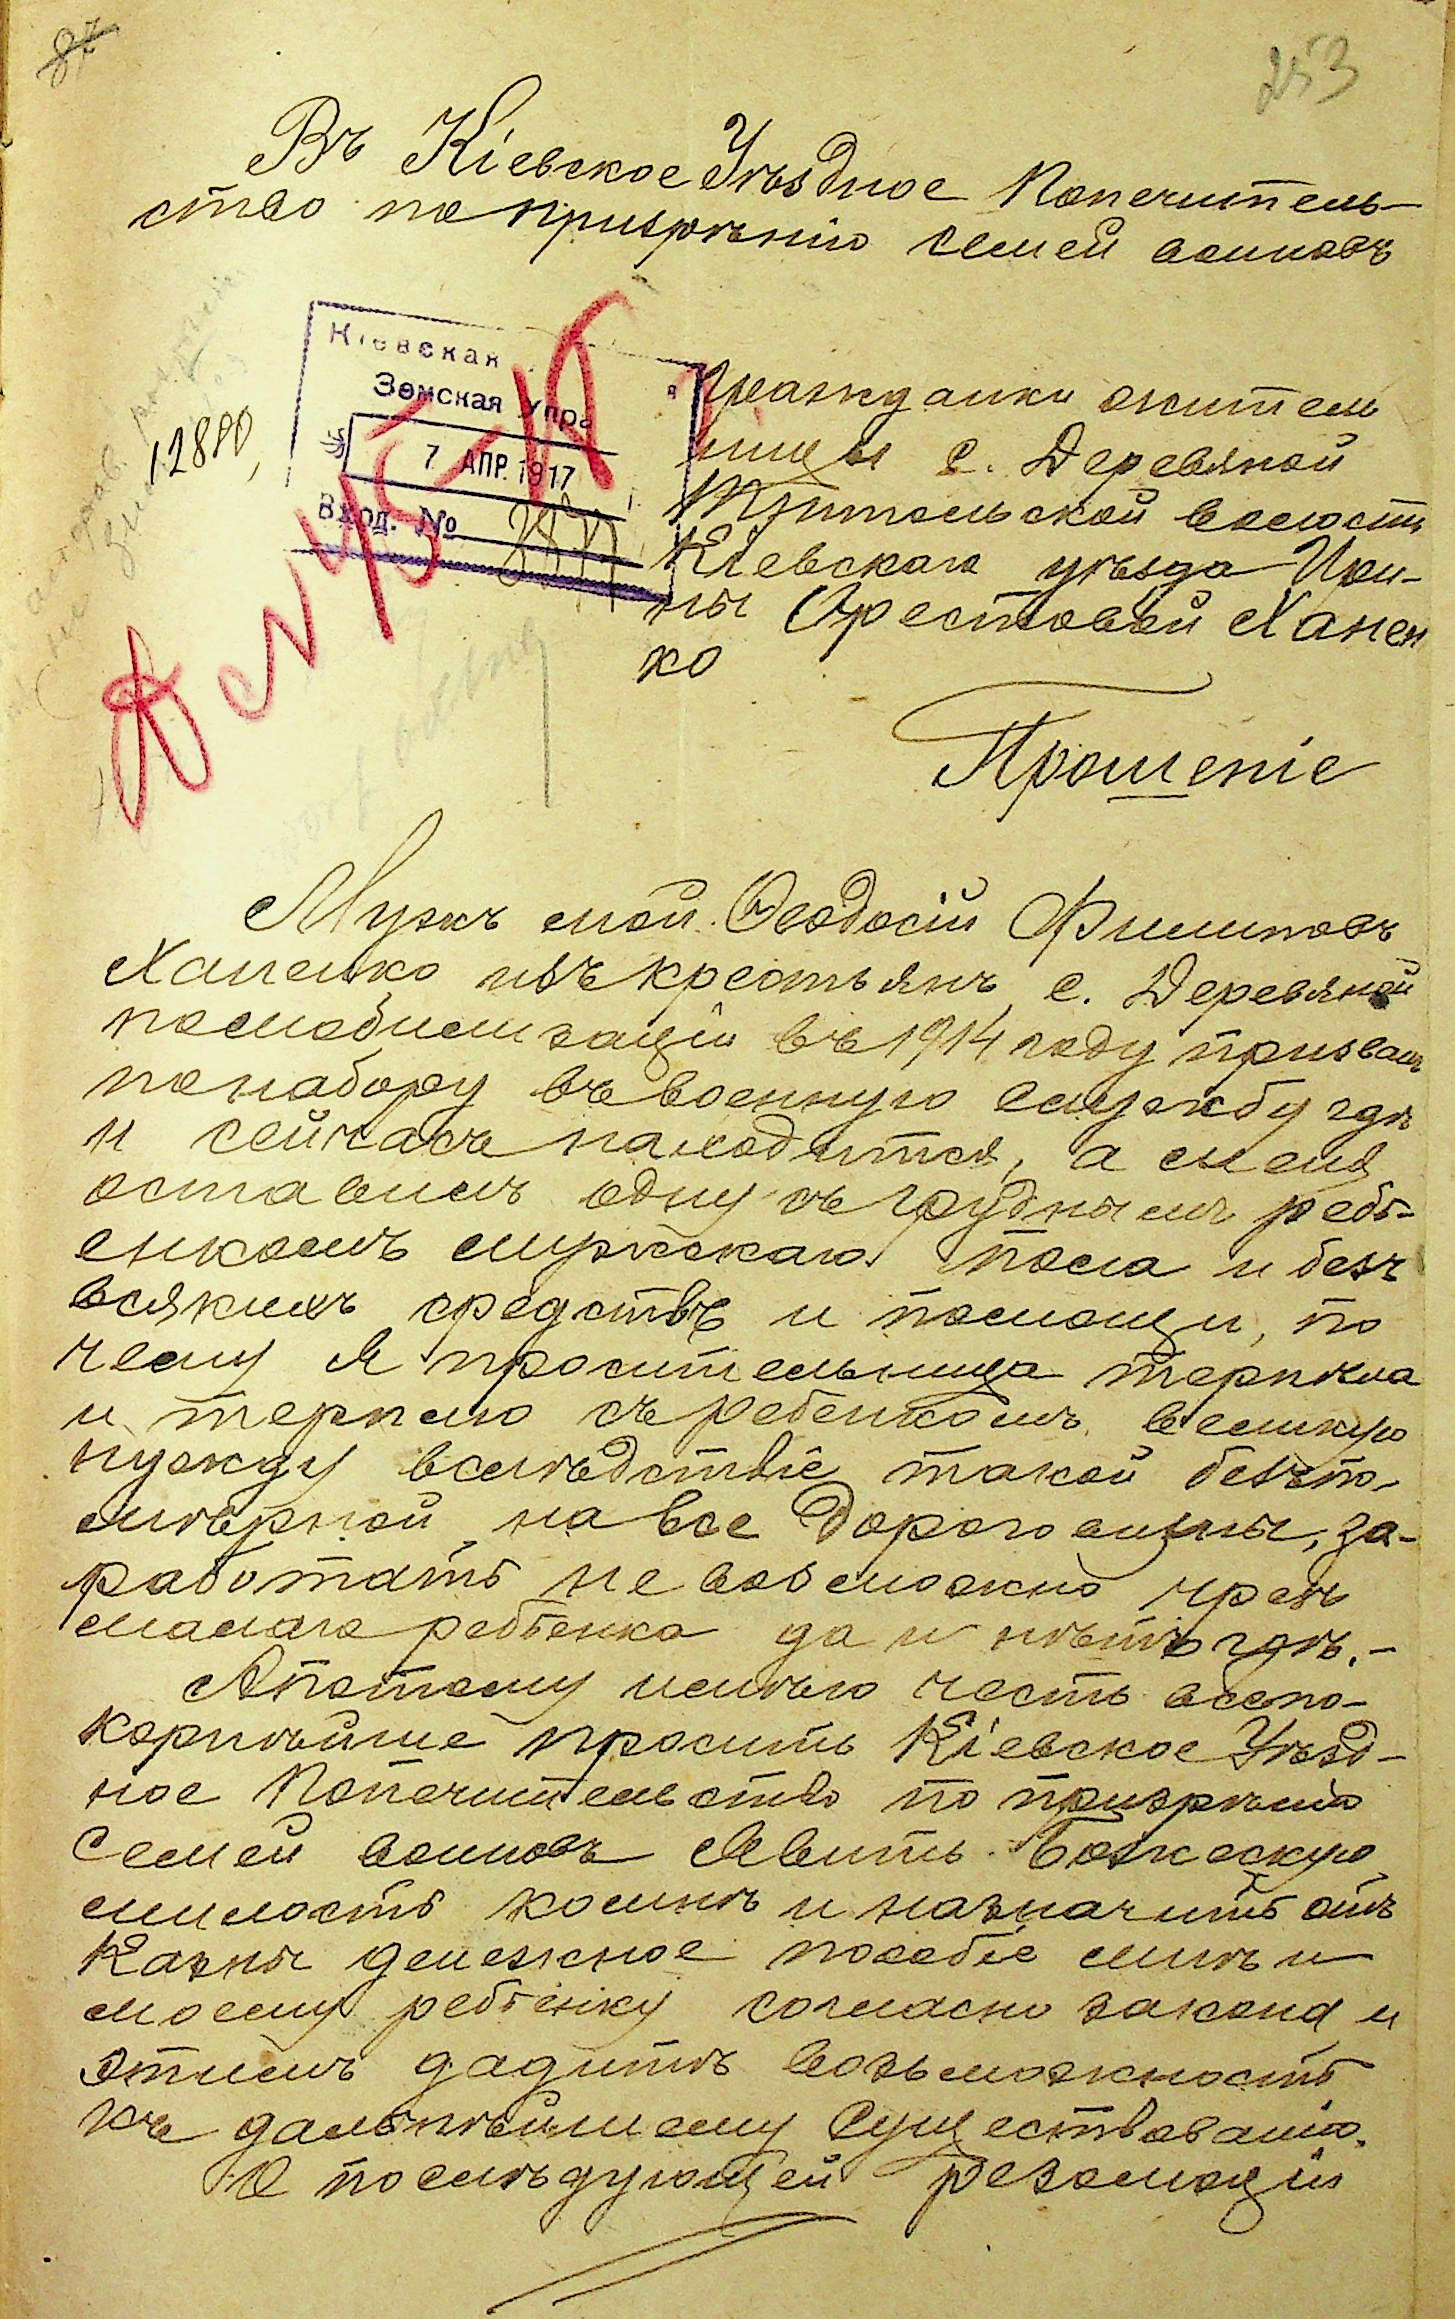 253
Въ Кіевское Уѣздное Попечитель-
ство по призрѣнію семей воиновъ
Кіевская
Земская Упра
7 АПР. 1917
Вход. №
12880
Гражданки жытель
ницы с. Деревяной
Трипольской волости
Кіевскаго уѣзда Ири-
ны Орестовой Ханен
ко
Прошеніе
Мужъ мой Ѳеодосій Филиповъ
Ханенко изъ крестьянъ с. Деревяной
помобилизаціи въ 1914 году призванъ
понабору въ военную службу гдѣ
и сейчасъ находится, а меня
оставилъ одну съ груднымъ ребь-
енкомъ мужскаго пола и безъ
всякихъ средствъ и помощи, по
чему я просительница терпѣла
и терплю съ ребенкомъ великую
нужду вслѣдствіе такой безпо-
мѣрной на все дороговизны, за-
работать не возможно чрезъ
малаго ребьенка да и нѣтъ гдѣ.-
А потому имѣю честь всепо-
корнѣйше просить Кіевское Уѣзд-
ное Попечительство по призрѣнію
семей воиновъ явить Божескую
милость ко мнѣ и назначить отъ
Казны денежное пособіе мнѣ и
моему ребьенку согласно закона и
этимъ дадитѣ возьможность
къ дальнѣйшему существованію.
О послѣдующей резолюціи